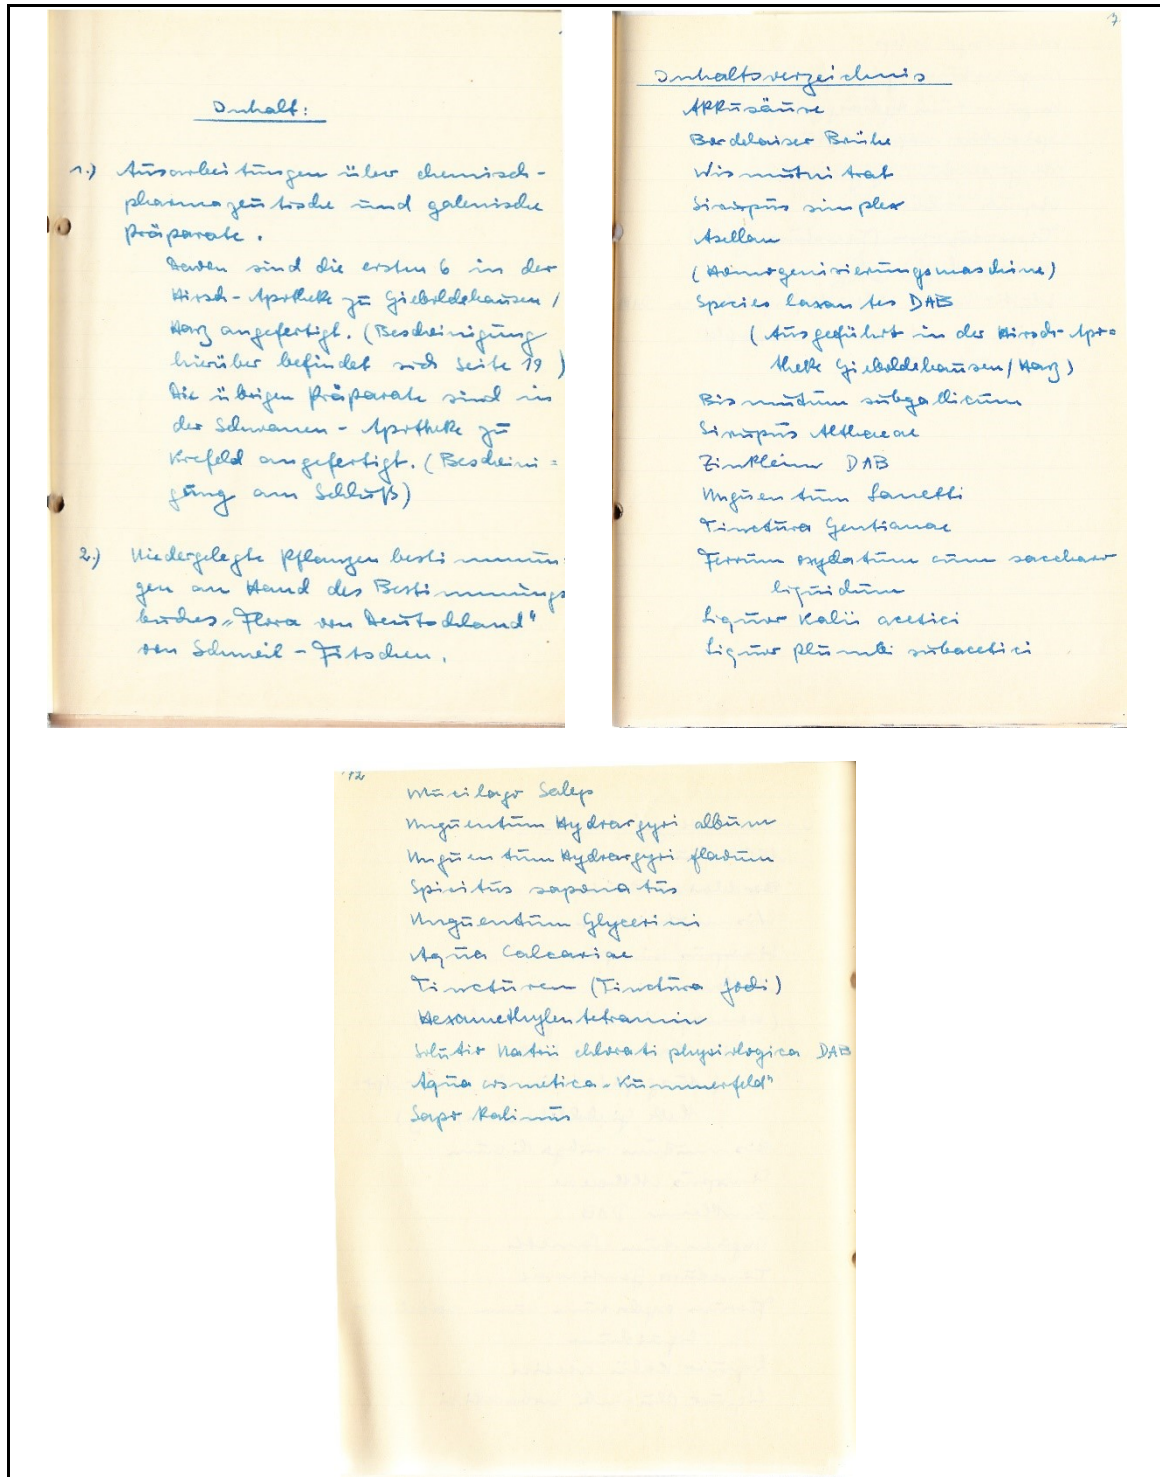 Inhalt:
1.) Ausarbeitungen über chemisch-
pharmazeutische und galenische
Präparate.
Davon sind die ersten 6 in der
Hirsch-Apotheke zu Gieboldehausen /
Harz angefertigt. (Bescheinigung
hierüber befindet sich Seite 19)
Die übrigen Präparate sind in
der Schwanen-Apotheke zu
Krefeld angefertigt. (Bescheini=
gung am Schluß)
2.) Niedergelegte Pflanzenbestimmun-
gen an Hand des Bestimmungs
buches „Flora von Deutschland"
von Schmeil-Fitschen.
7
Inhaltsverzeichnis
Akkusäure
Bordelaiser Brühe
Wismutnitrat
Sirupus simplex
Asellan
(Homogenisierungsmaschine)
Species laxantes DAB
(Ausgeführt in der Hirsch-Apo=
theke Gieboldehausen/Harz)
Bismutum subgallicum
Sirupus Althaeae
Zinkleim DAB
Unguentum Lanetti
Tinctura Gentianae
Ferrum oxydatum cum saccharo
liquidum
Liquor Kalii acetici
Liquor plumbi subacetici
12
Mucilago Salep
Unguentum Hydrargyri album
Unguentum Hydrargyri flavum
Spiritus saponatus
Unguentum Glycerini
Aqua Calcariae
Tincturen (Tinctura Jodi)
Hexamethylentetramin
Solutio Natrii chlorati physiologica DAB
Aqua cosmetica „Kummerfeld"
Sapo kalinus